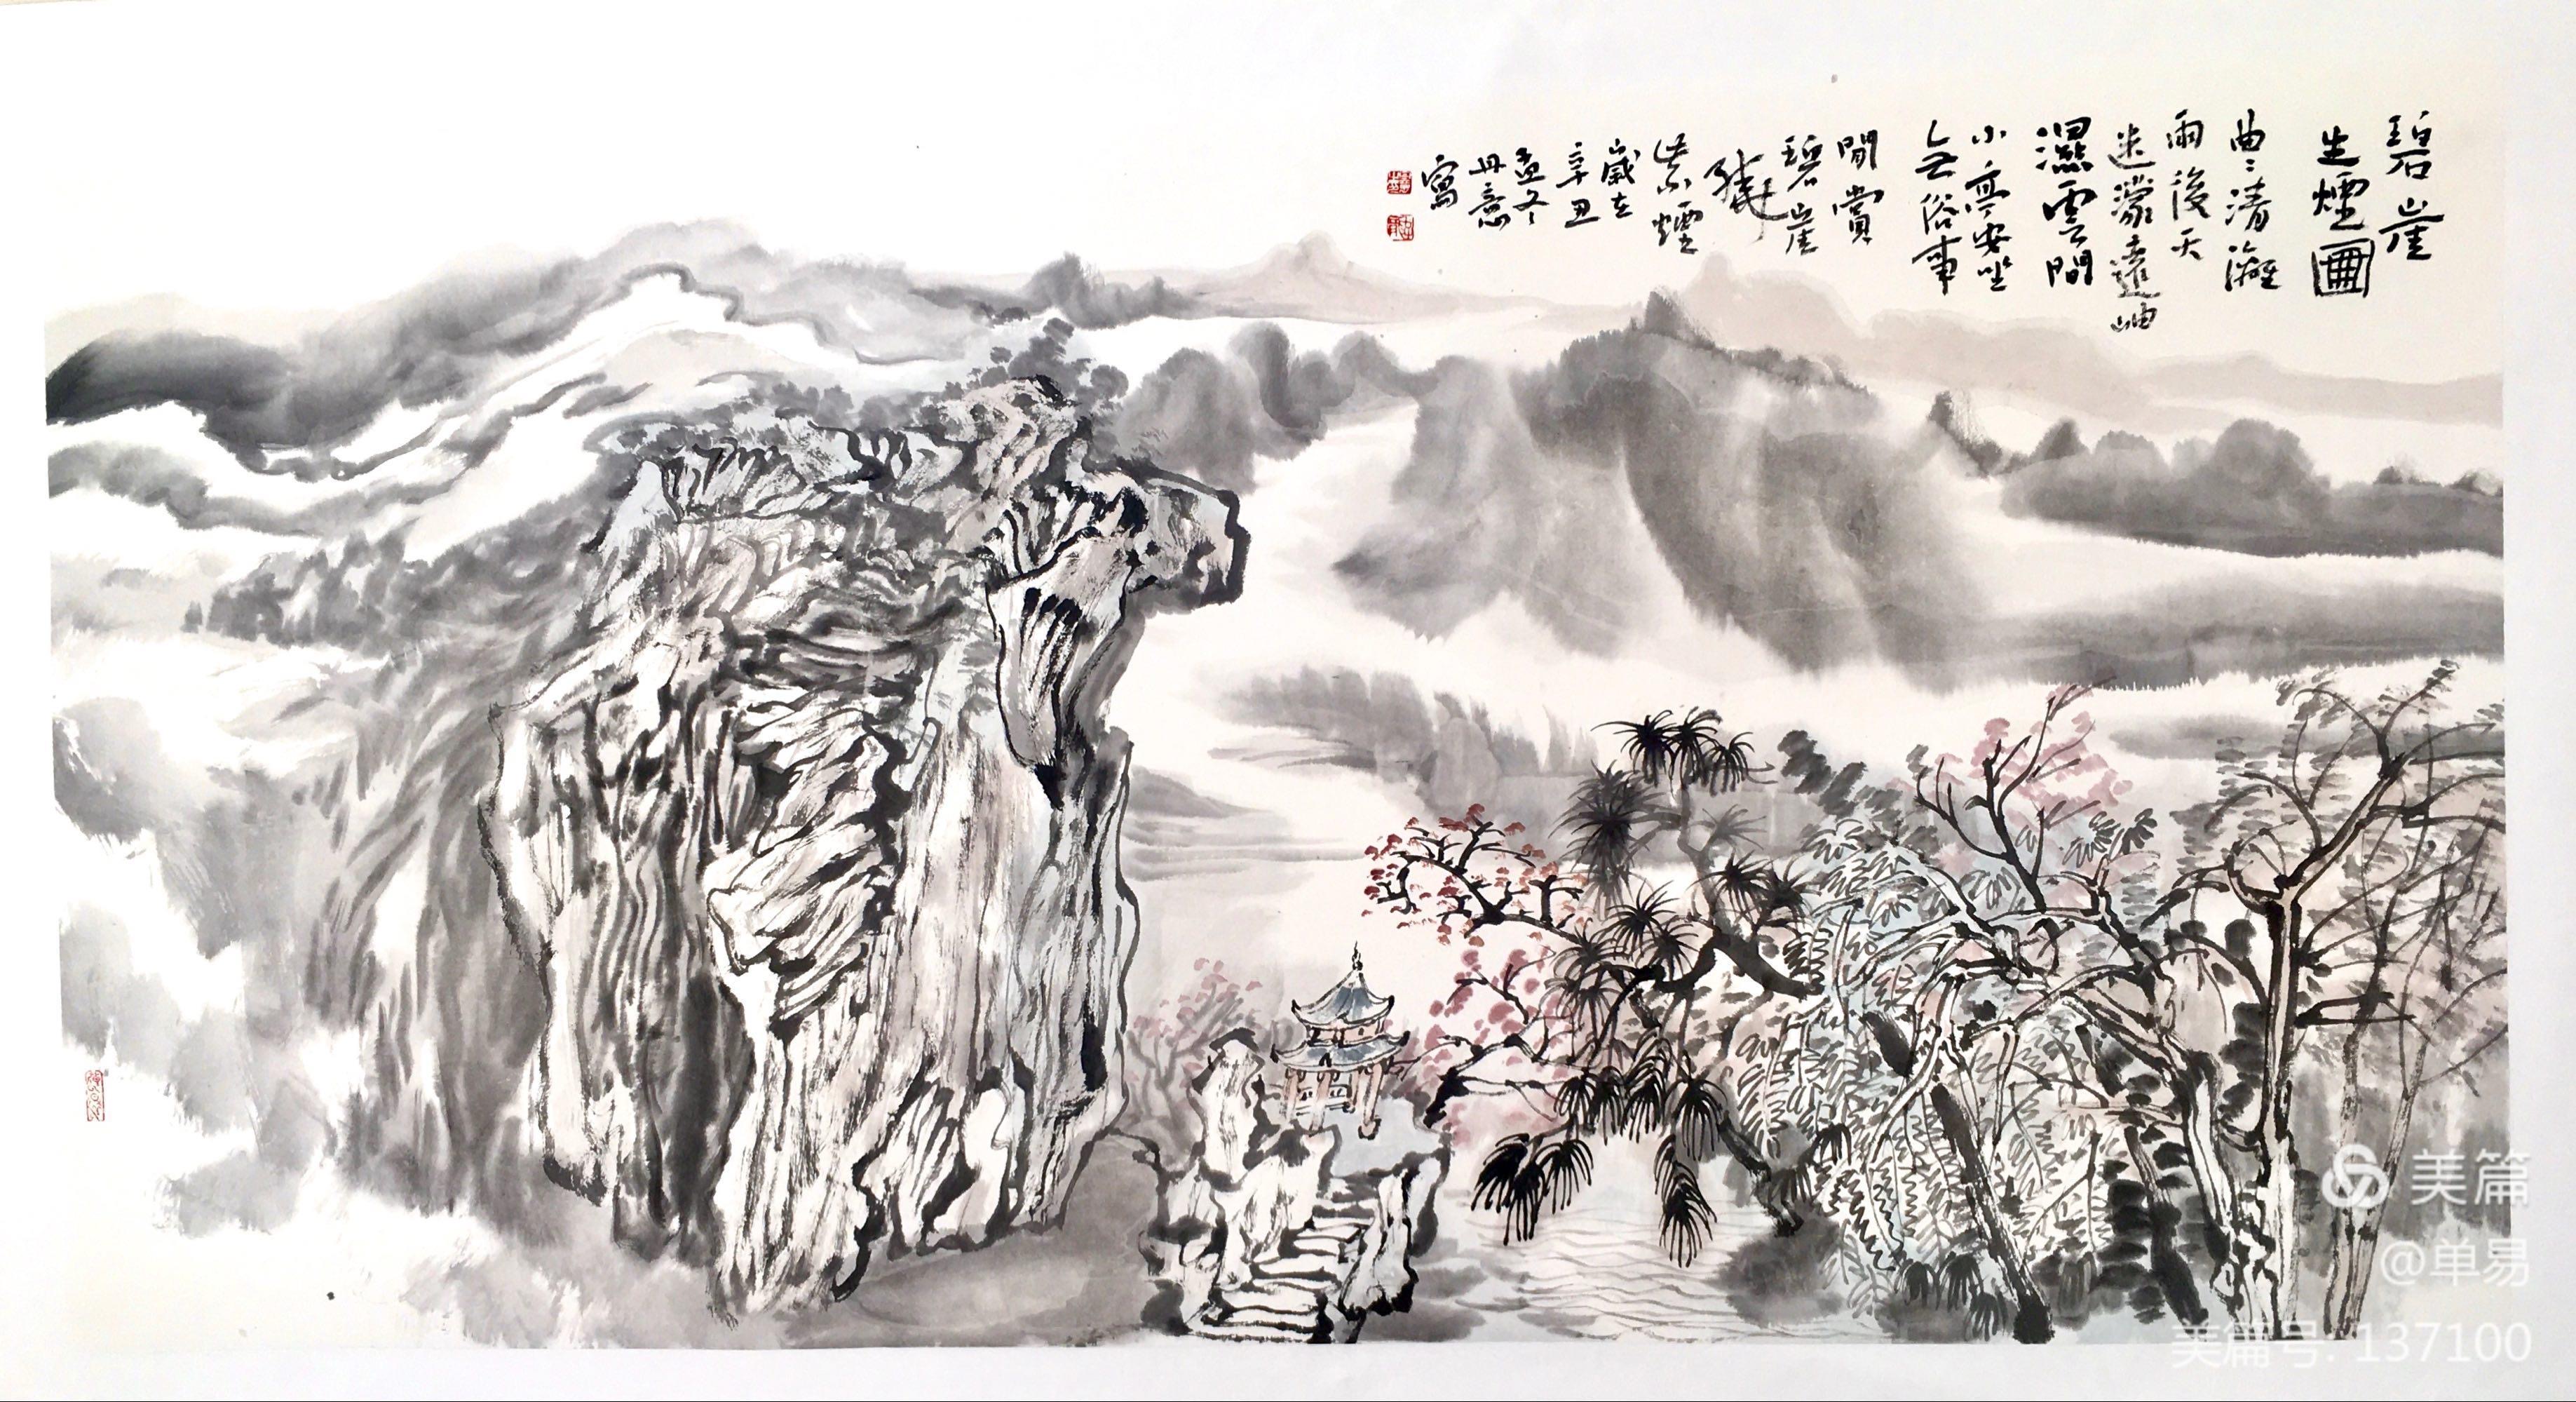 碧崖
生煙圖
曲〻清灕
雨後天
迷濛遠岫
濕雲間
小亭安坐
無俗事
閒賞
碧崖
繞
紫煙
歲在
辛丑
孟冬
丹意
寫
美篇
@单易
美篇号: 137100